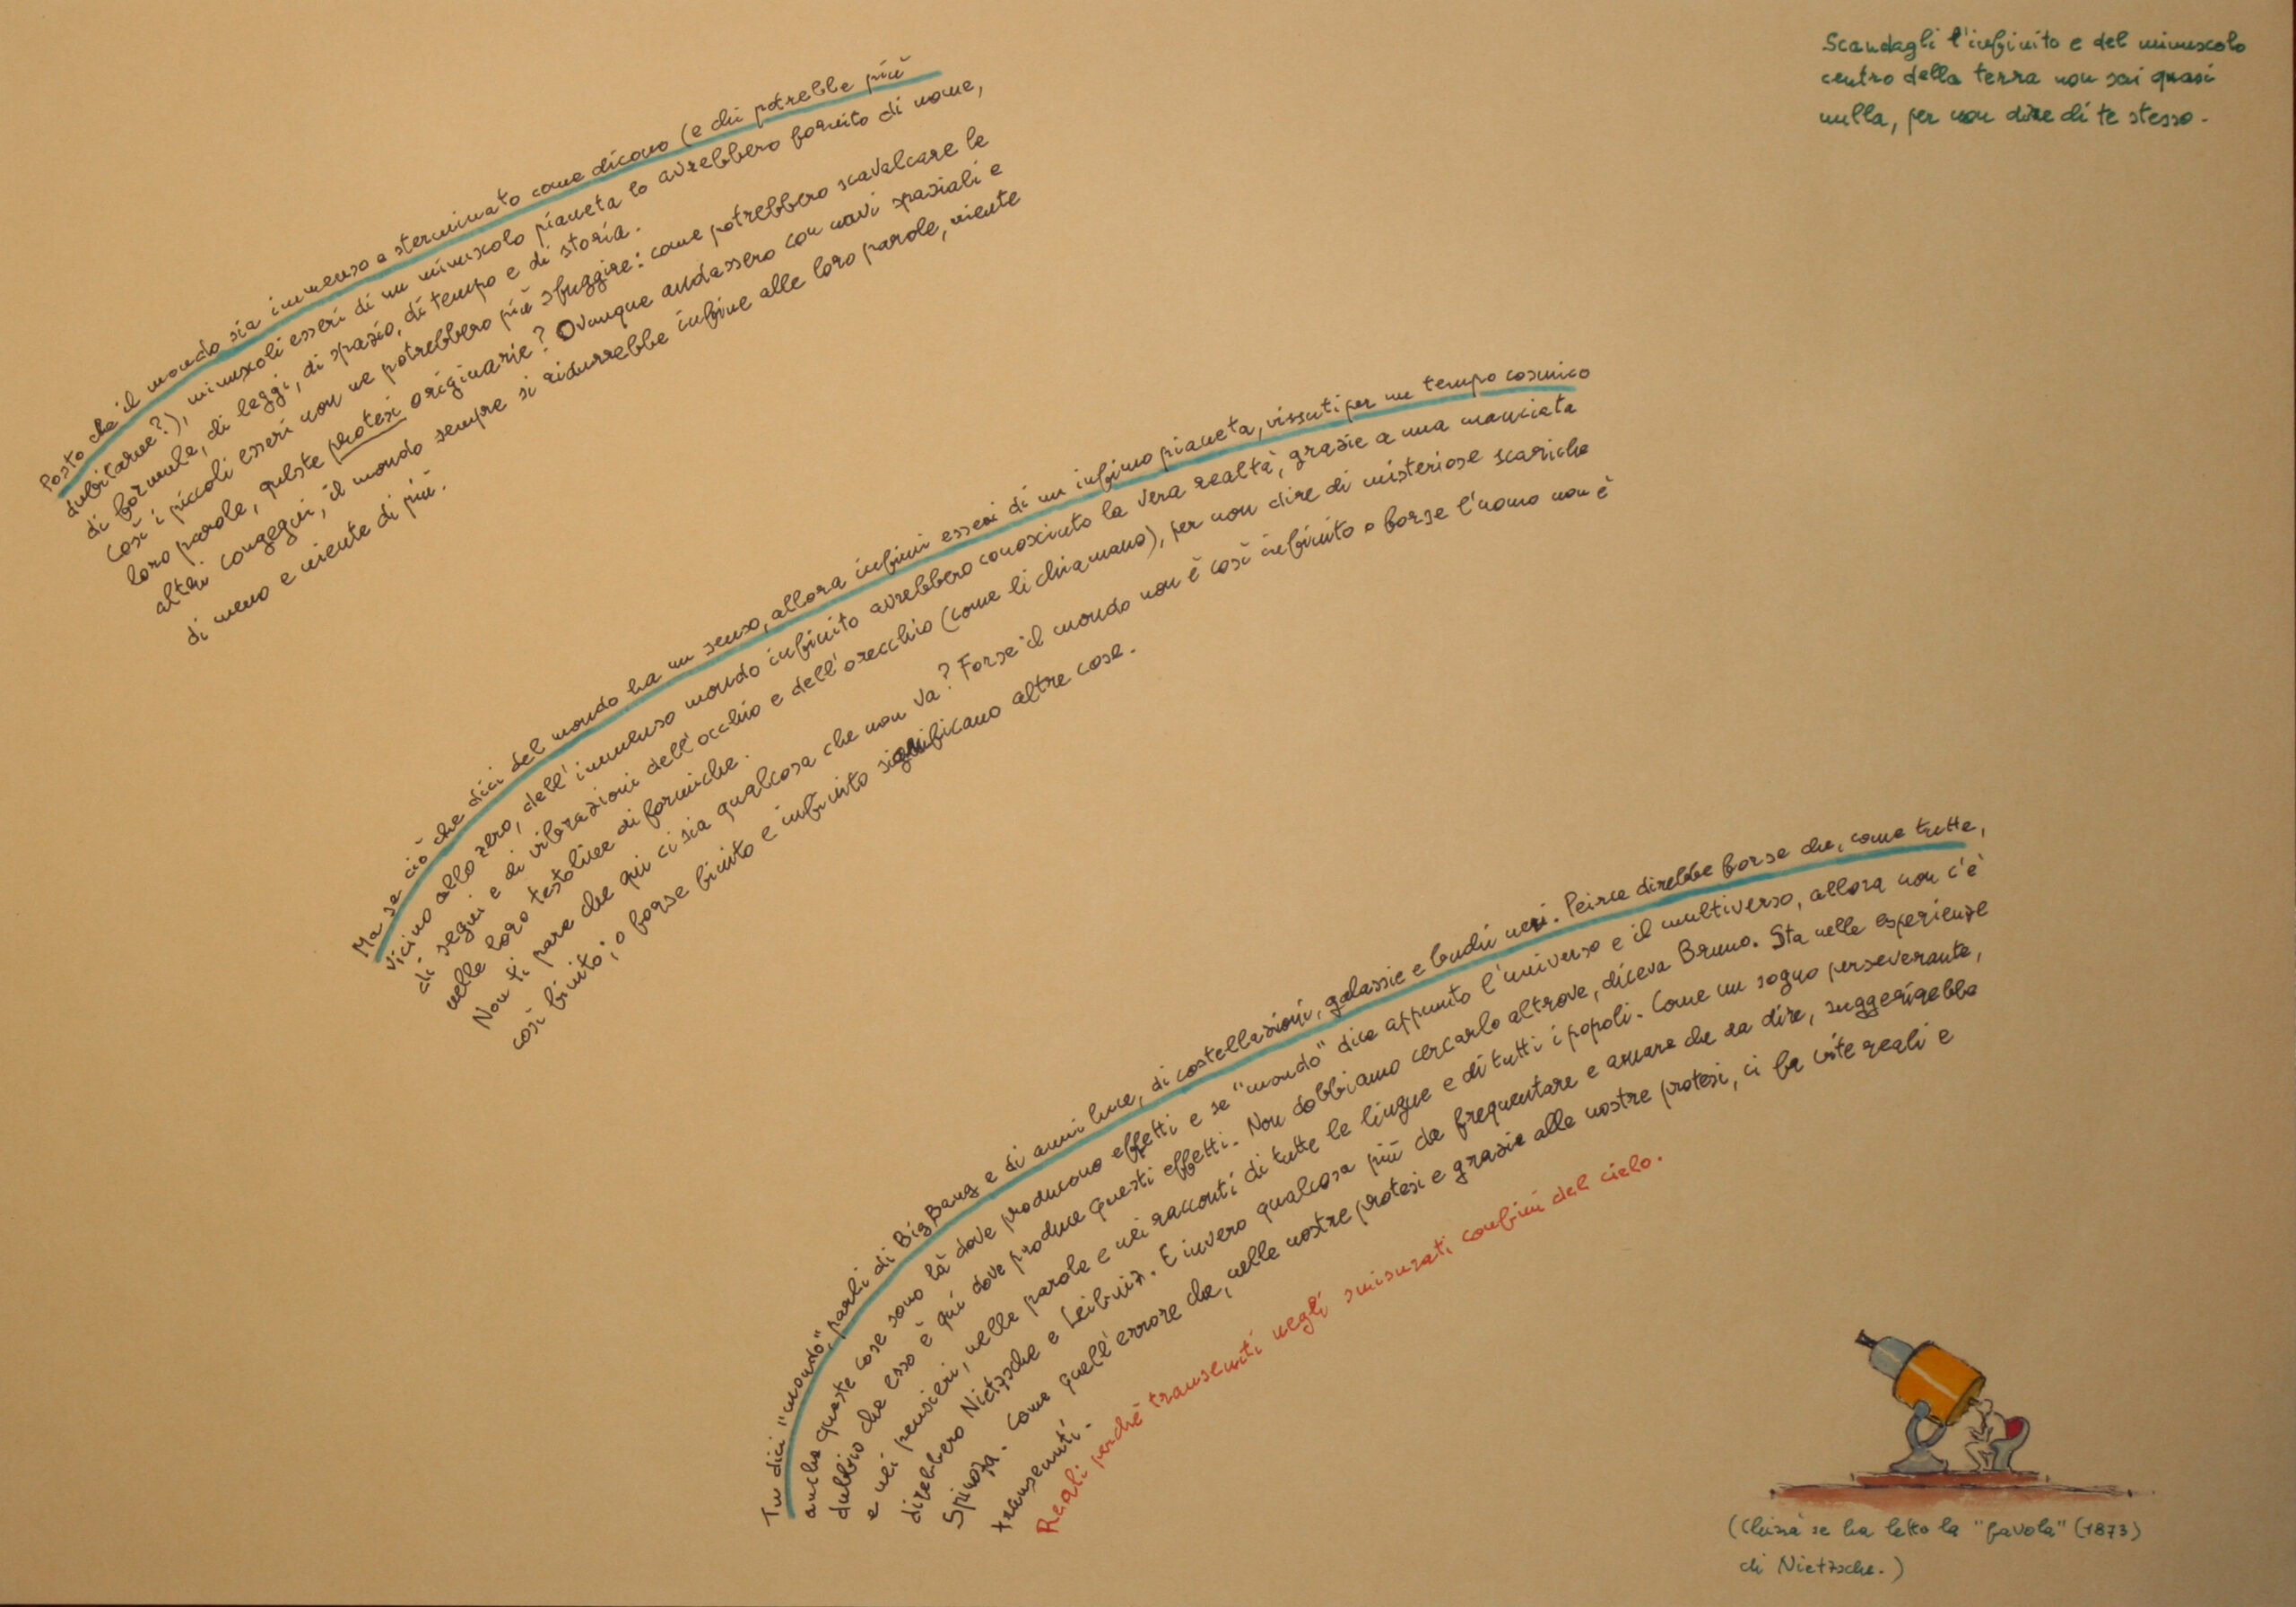 Scandagli l'infinito e del minuscolo
centro della terra non sai quasi
nulla, per non dire di te stesso.
Posto che il mondo sia immenso e sterminato come dicono (e chi potrebbe più
dubitarne?), minuscoli esseri di un minuscolo pianeta lo avrebbero fornito di nome,
di formule, di leggi, di spazio, di tempo e di storia.
Così i piccoli esseri non ne potrebbero più sfuggire: come potrebbero scavalcare le
loro parole, queste protesi originarie? Ovunque andassero con navi spaziali e
altri congegni, il mondo sempre si ridurrebbe infine alle loro parole, niente
di meno e niente di più.
Ma se ciò che dici del mondo ha un senso, allora infimi esseri di un infimo pianeta, vissuti per un tempo cosmico
vicino allo zero, dell'immenso mondo infinito avrebbero conosciuto la vera realtà, grazie a una manciata
di segni e di vibrazioni dell'occhio e dell'orecchio (come li chiamano), per non dire di misteriose scariche
nelle loro testoline di formiche.
Non ti pare che qui ci sia qualcosa che non va? Forse il mondo non è così infinito o forse l'uomo non è
così finito; o forse finito e infinito significano altre cose.
Tu dici "mondo", parli di Big Bang e di anni luce, di costellazioni, galassie e buchi neri. Peirce direbbe forse che, come tutte,
anche queste cose sono là dove producono effetti e se "mondo" dice appunto l'universo e il multiverso, allora non c'è
dubbio che esso è qui dove produce questi effetti. Non dobbiamo cercarlo altrove, diceva Bruno. Sta nelle esperienze
e nei pensieri, nelle parole e nei racconti di tutte le lingue e di tutti i popoli. Come un sogno perseverante,
direbbero Nietzsche e Leibniz. E invero qualcosa più da frequentare e amare che da dire, suggerirebbe
Spinoza. Come quell'errore che, nelle nostre protesi e grazie alle nostre protesi, ci fa vite reali e
transeunti.
Reali perché transeunti negli smisurati confini del cielo.
(Chissà se ha letto la "favola" (1873)
di Nietzsche.)